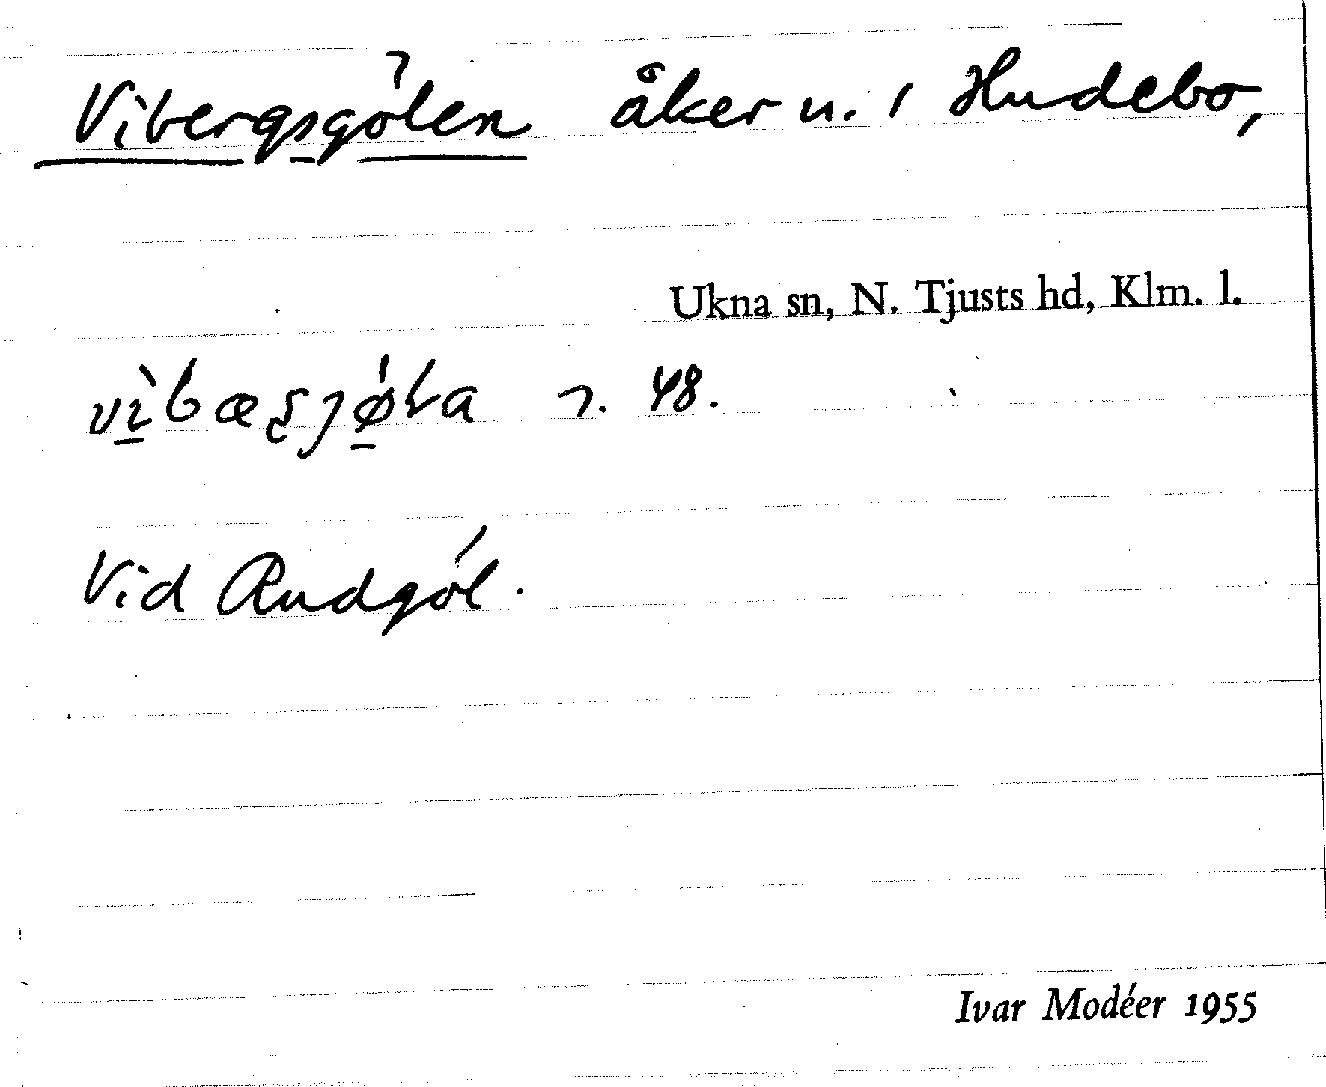 Vibergsgölen åker u. / Hudebo,
Ukna sn, N. Tjusts hd, Klm. l.
48.
Vid Rudgöl.
Ivar Modéer 1955